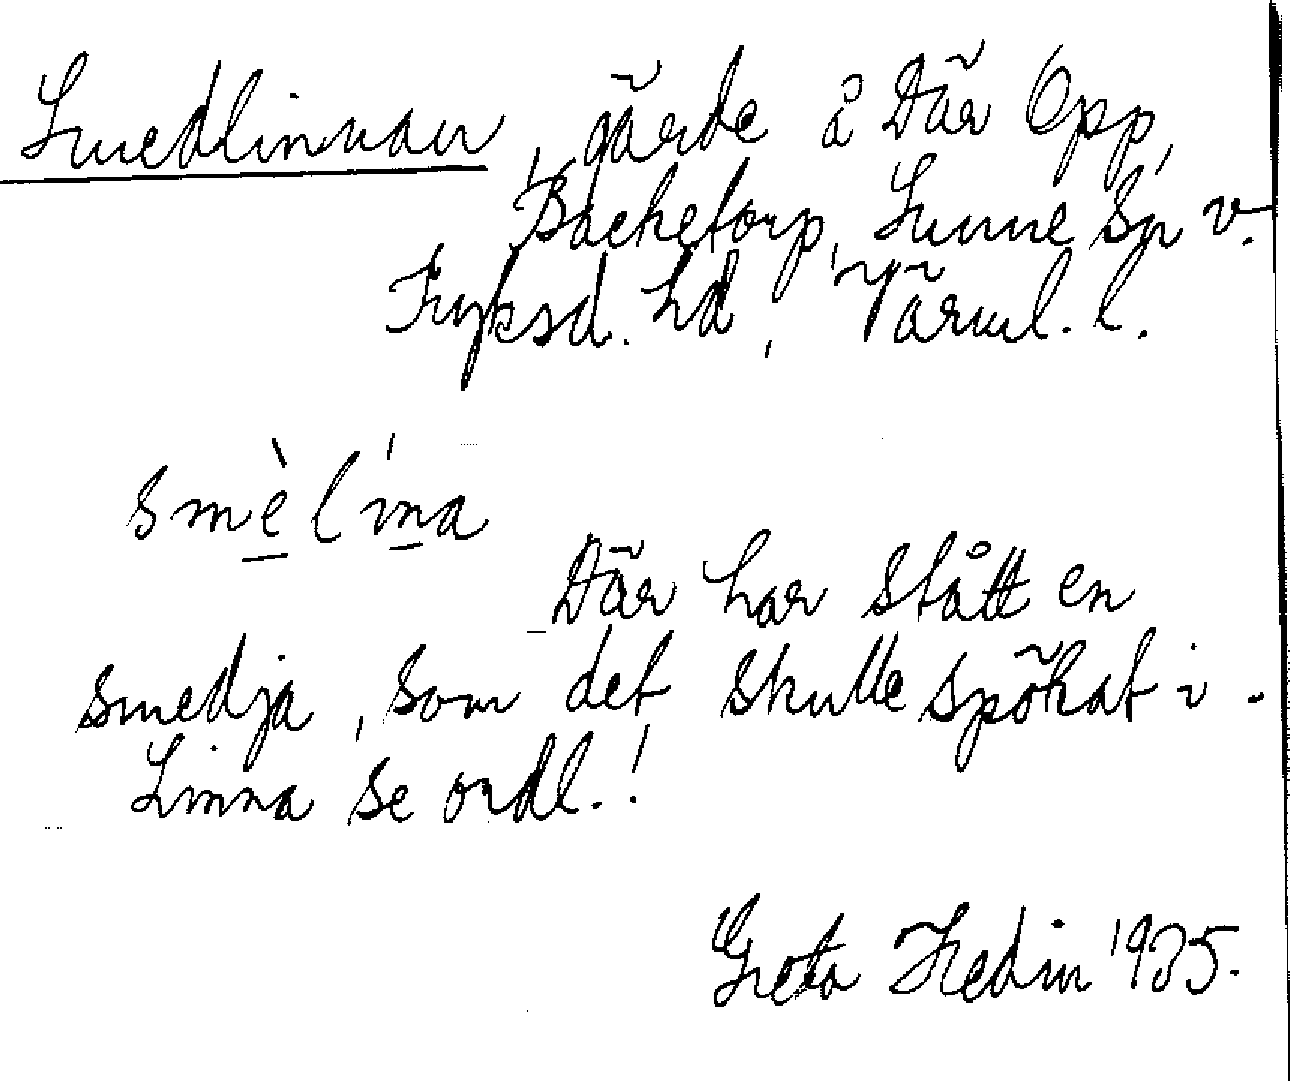 Smedlinnan, gärde å Där Opp,
Backetorp, Sunne sn v.
Fryksd. hd, Värml. l.
smèlína
Där har stått en
smedja, som det skulle spökat i.
Linna se ordl.!
Greta Hedin 1935.